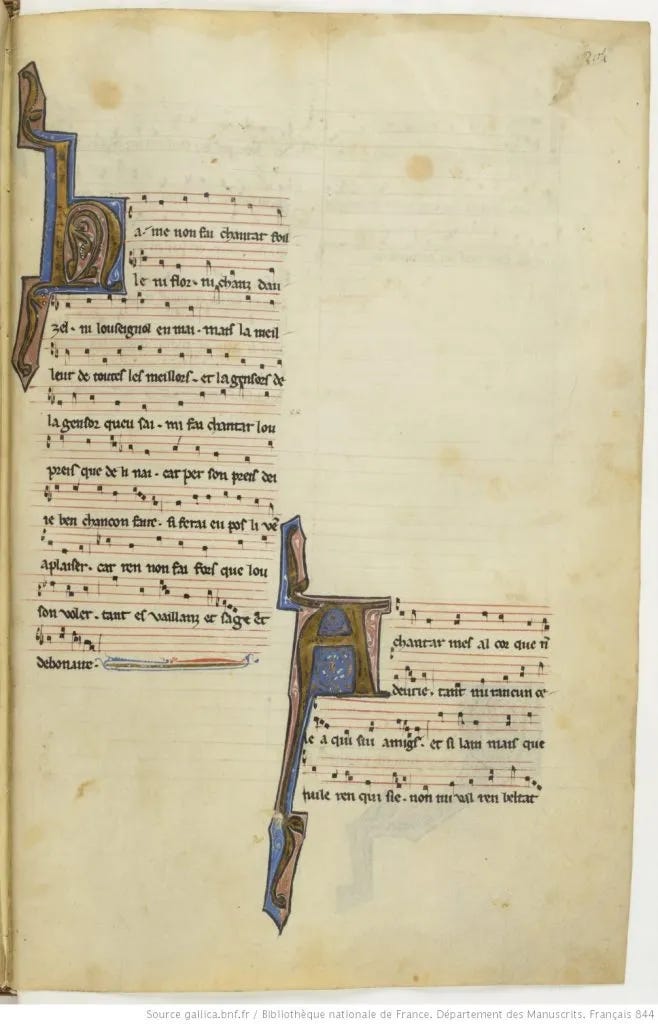 204
ha me non fai chantar foil
le ni flor · ni chanz dau
zel · ni louseignol en mai · mais la meil
leur de toutes les meillors · et la gensors de
la gensor queu sai · mi fai chantar lou
preis que de li nai · car per son preis dei
ie ben chancon faire · si ferai eu pos li vẽ
a plaiser · car ren non fai fors que lou
son voler · tant es vaillanz et sage et
debonaire ·
A chantar mes al cor que ñ
deurie · tant mi rancun ce
le a qui sui amigs · et si lam mais que
nule ren qui sie · non mi val ren beltat
Source gallica.bnf.fr / Bibliothèque nationale de France. Département des Manuscrits. Français 844